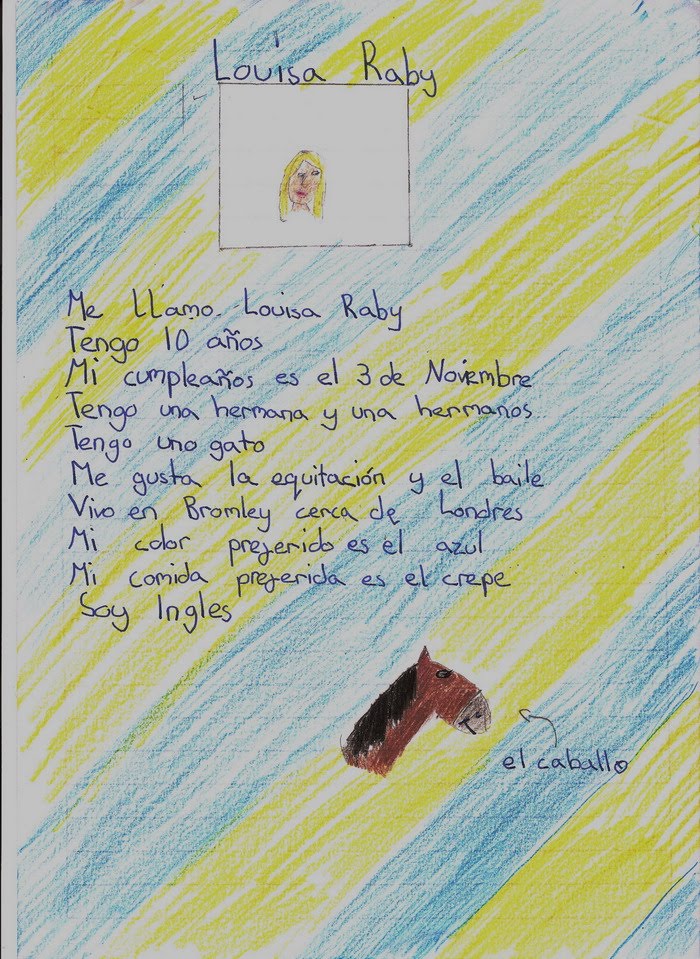 Louisa Raby
Me LLamo Louisa Raby
Tengo 10 años
Mi cumpleaños es el 3 de Noviembre
Tengo una hermana y una hermanos
Tengo uno gato
Me gusta la equitación y el baile
Vivo en Bromley cerca de Londres
Mi color preferido es el azul
Mi comida preferida es el crepe
Soy Ingles
el caballo